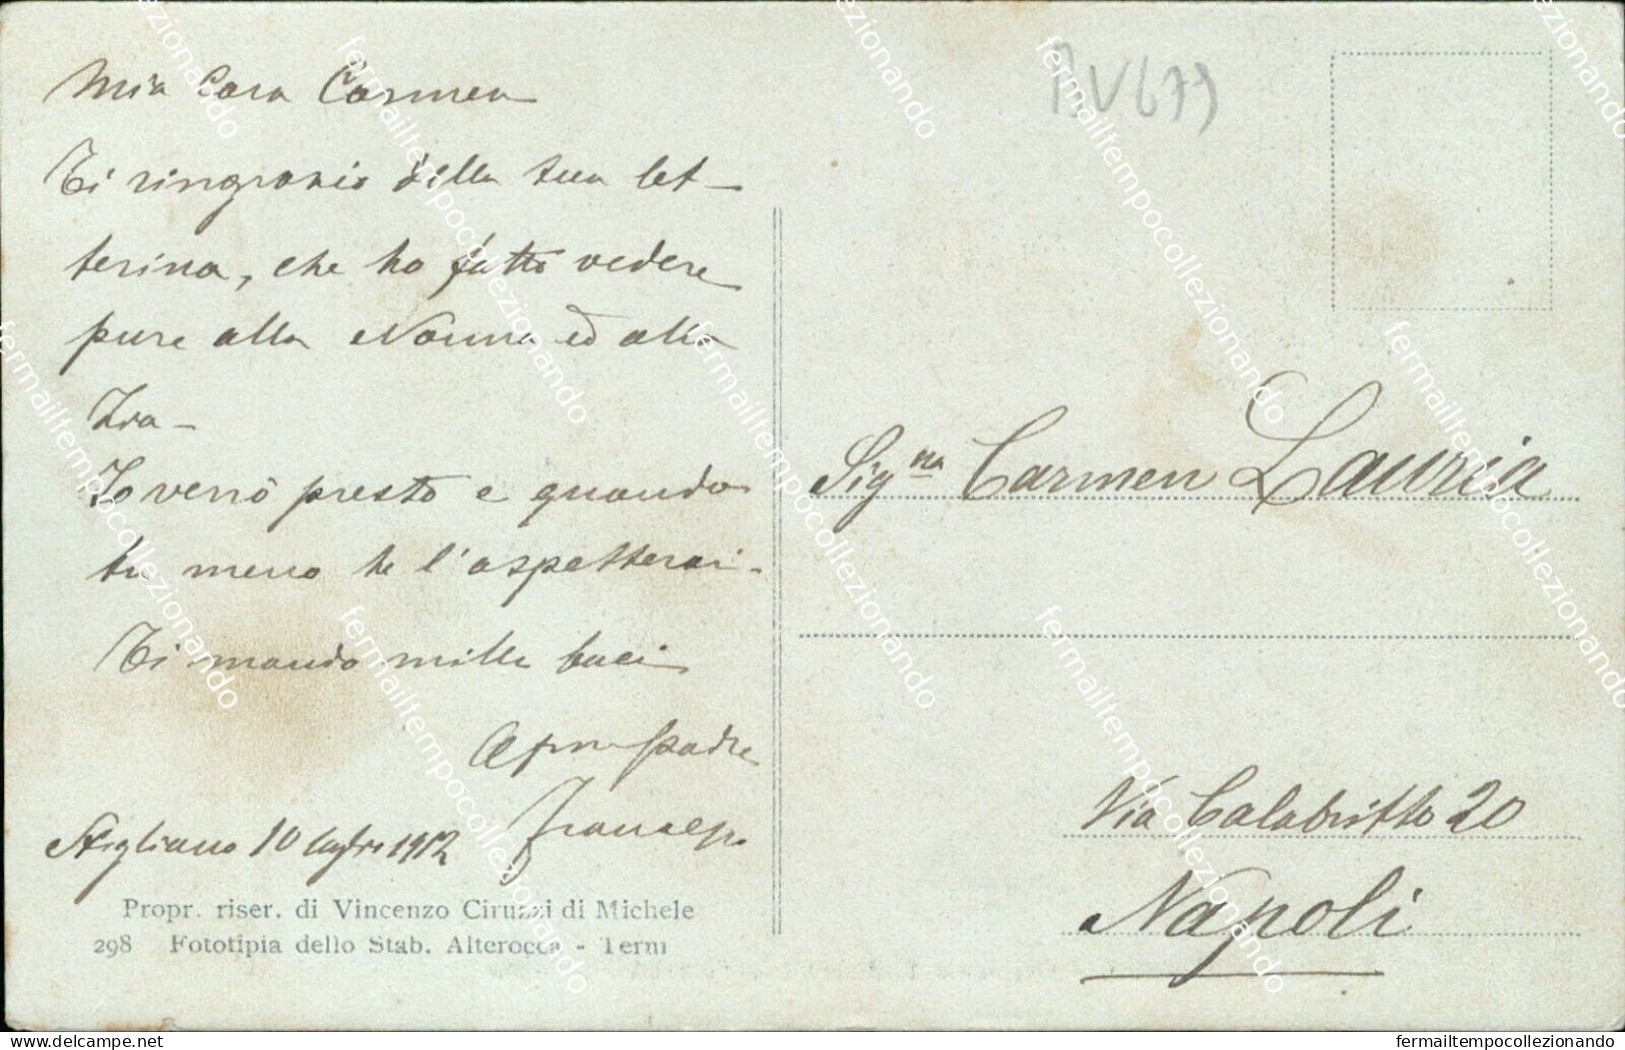 Mia Cara Carmen
Ti ringrazio della tua let-
terina, che ho fatto vedere
pure alla Nonna ed alla
Zia -
Io verrò presto e quando
tu meno te l'aspetterai -
Ti mando mille baci
Padre
Stigliano 10 luglio 1912
Propr. riser. di Vincenzo Ciruzzi di Michele
298 Fototipia dello Stab. Alterocca - Terni
Signa Carmen Lauria
Via Calabritto 20
Napoli
fermailtempocollezionando